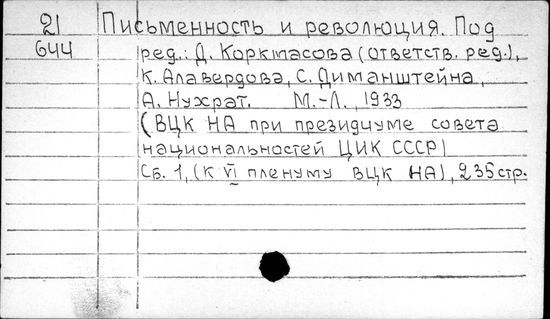 21 Письменность и революция. Под
644 ред.: Д. Коркмасова (ответств. ред.),
К. Алавердова, С. Диманштейна,
А. Нухрат. М.-Л., 1933
(ВЦК НА при президиуме совета
национальностей ЦИК СССР)
Сб. 1, (к VI пленуму ВЦК НА), 235 стр.